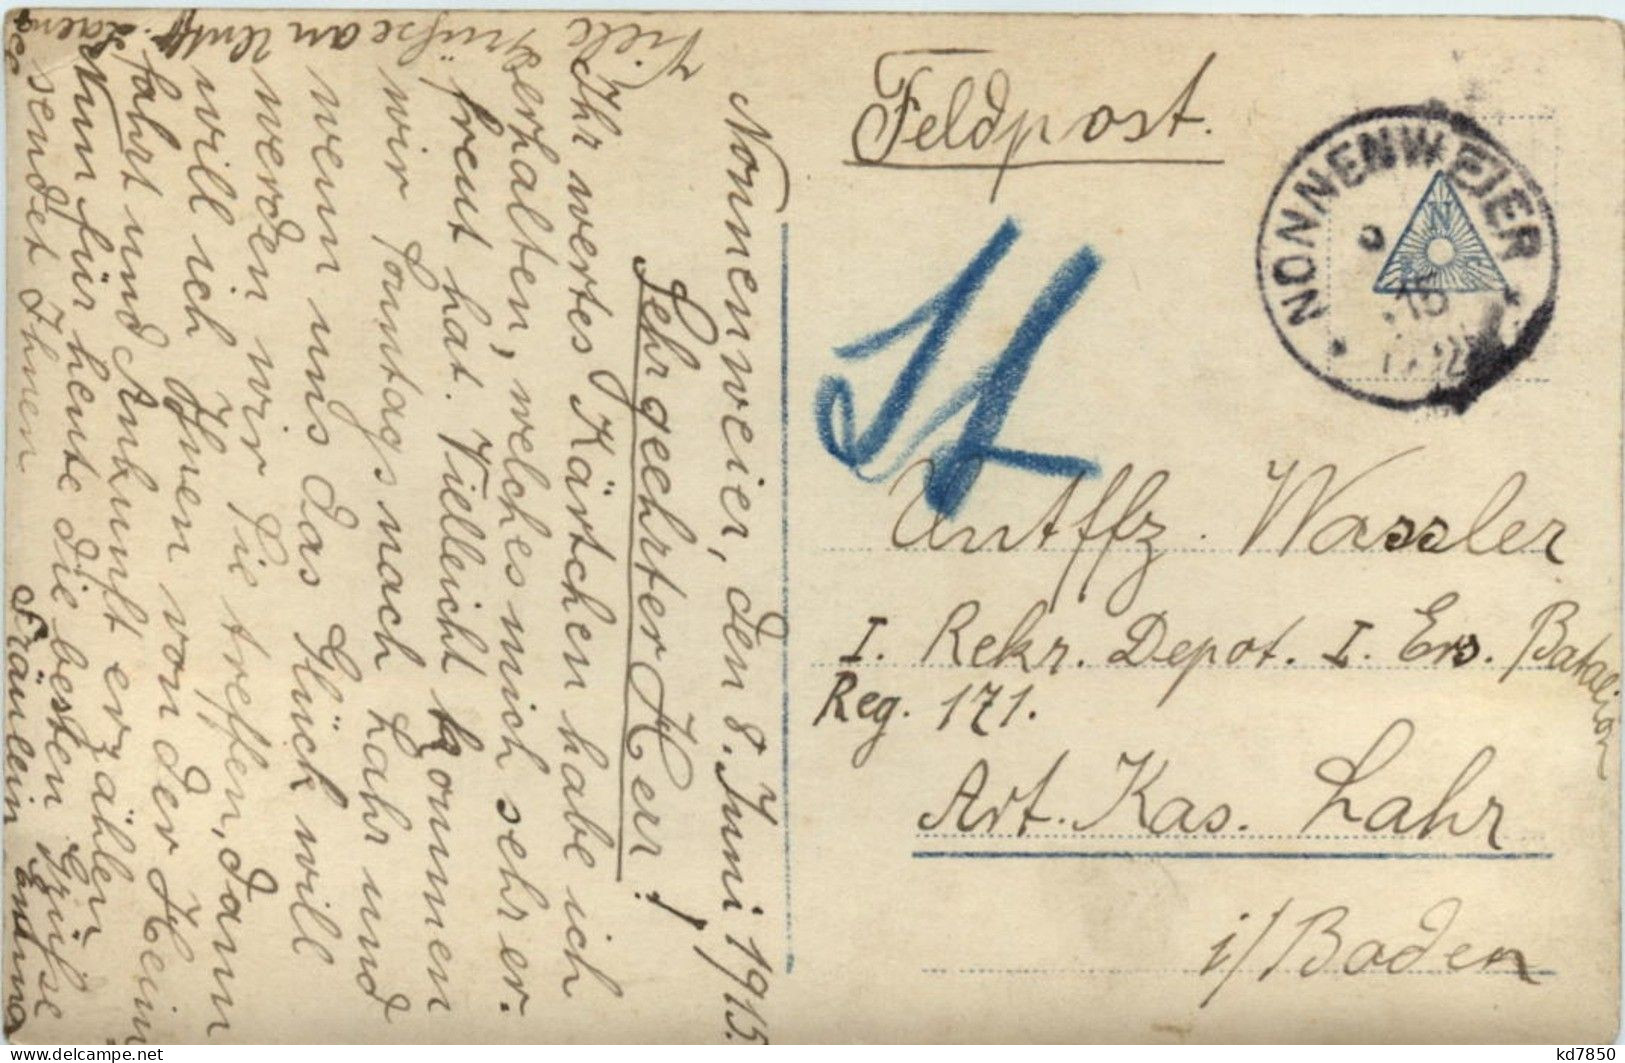 Feldpost.
NONNENWEIER
15
N
Untffz. Wassler
I. Rekr. Depot. I. Ers. Batalion
Reg. 171.
Art. Kas. Lahr
i/Baden
Nonnenweier, den 8. Juni 1915.
Sehr geehrter Herr!
Ihr wertes Kärtchen habe ich
erhalten, welches mich sehr er-
freut hat. Vielleicht kommen
wir Sonntags nach Lahr und
wenn uns das Glück will
werden wir Sie treffen, dann
will ich Ihnen von der Heim
fahrt und Ankunft erzählen
Nun für heute die besten Grüsse
sendet Ihnen
Fräulein Emma
Viele Grüsse an Untff.
kd7850